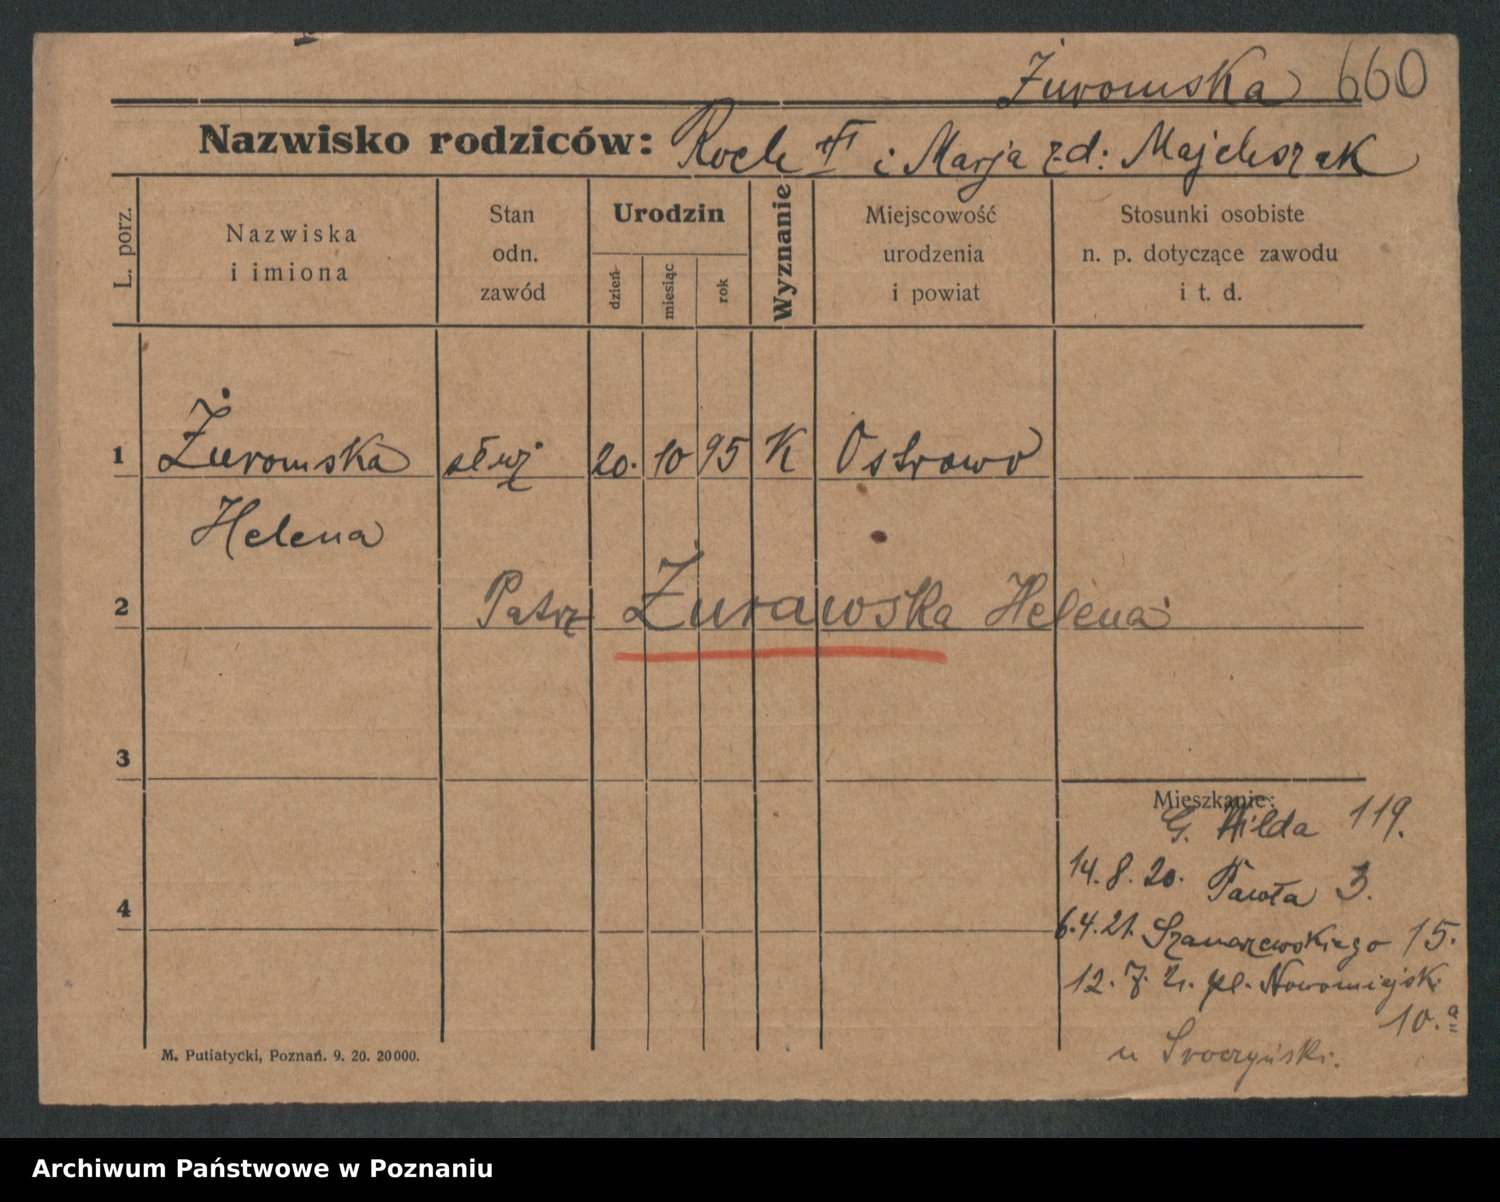 Żuromska 660
Nazwisko rodziców: Roch i Marja z d: Majchszak
L. porz.
Nazwiska
i imiona
Stan
odn.
zawód
Urodzin
dzień
miesiąc
rok
Wyznanie
Miejscowość
urodzenia
i powiat
Stosunki osobiste
n. p. dotyczące zawodu
i t. d.
1 Żuromska służ 20. 10 95 K Ostrowo
Helena
2 Patrz Żurawska Helena
3
Mieszkanie:
G. Wilda 119.
14. 8. 20. Pawła 3.
4
6.4.21. Szamarzewskiego 15.
12. 7. 21. pl. Nowomiejski
10.a
u Sroczyński.
M. Putiatycki, Poznań. 9. 20. 20000.
Archiwum Państwowe w Poznaniu